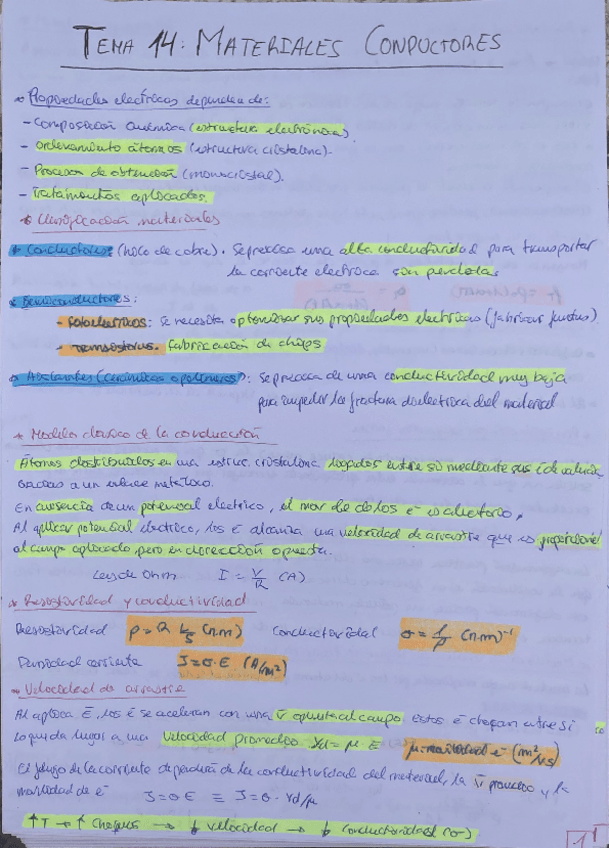 TEMA 14: MATERIALES CONDUCTORES
* Propiedades eléctricas dependen de:
- Composición química (estructura electrónica)
- Ordenamiento átomos (estructura cristalina).
- Proceso de obtención (monocristal).
- Tratamientos aplicados.
* Clasificación materiales
* Conductores (hilo de cobre). Se precisa una alta conductividad para transportar
la corriente eléctrica sin perdidas
* Semiconductores:
- Fotoeléctricos: se necesita optimizar sus propiedades eléctricas (fabricar
- Transistores. Fabricación de chips
* Aislantes (cerámicos o polímeros): Se precisa de una conductividad muy baja
para impedir la fractura dieléctrica del material
* Modelo clásico de la conducción
Átomos distribuidos en una estruc. cristalina ligados entre sí mediante sus é de valencia
gracias a un enlace metálico.
En ausencia de un potencial electrico, el mar de de los e⁻ es aleatorio,
Al aplicar potencial eléctrico, los é alcanza una velocidad de arrastre que es proporcional
al campo aplicado pero en dirección opuesta.
Ley de Ohm I = V/R (A)
* Resistividad y conductividad
Resistividad ρ = R S/L (Ω.m) Conductividad σ = 1/ρ (Ω.m)⁻¹
Densidad corriente J = σ·E (A/m²)
* Velocidad de arrastre
Al aplica E, los é se aceleran con una v̄ opuesta al campo estos é chocan entre si
lo que da lugar a una velocidad promedio Vd = μ E μ = movilidad e⁻ (m²/V.s)
El flujo de la corriente dependerá de la conductividad del material, la v̄ promedio y la
movilidad de é J = σ E ≡ J = σ · Vd/μ
↑ T → ↑ Choques → ↓ velocidad → ↓ conductividad (σ)
1